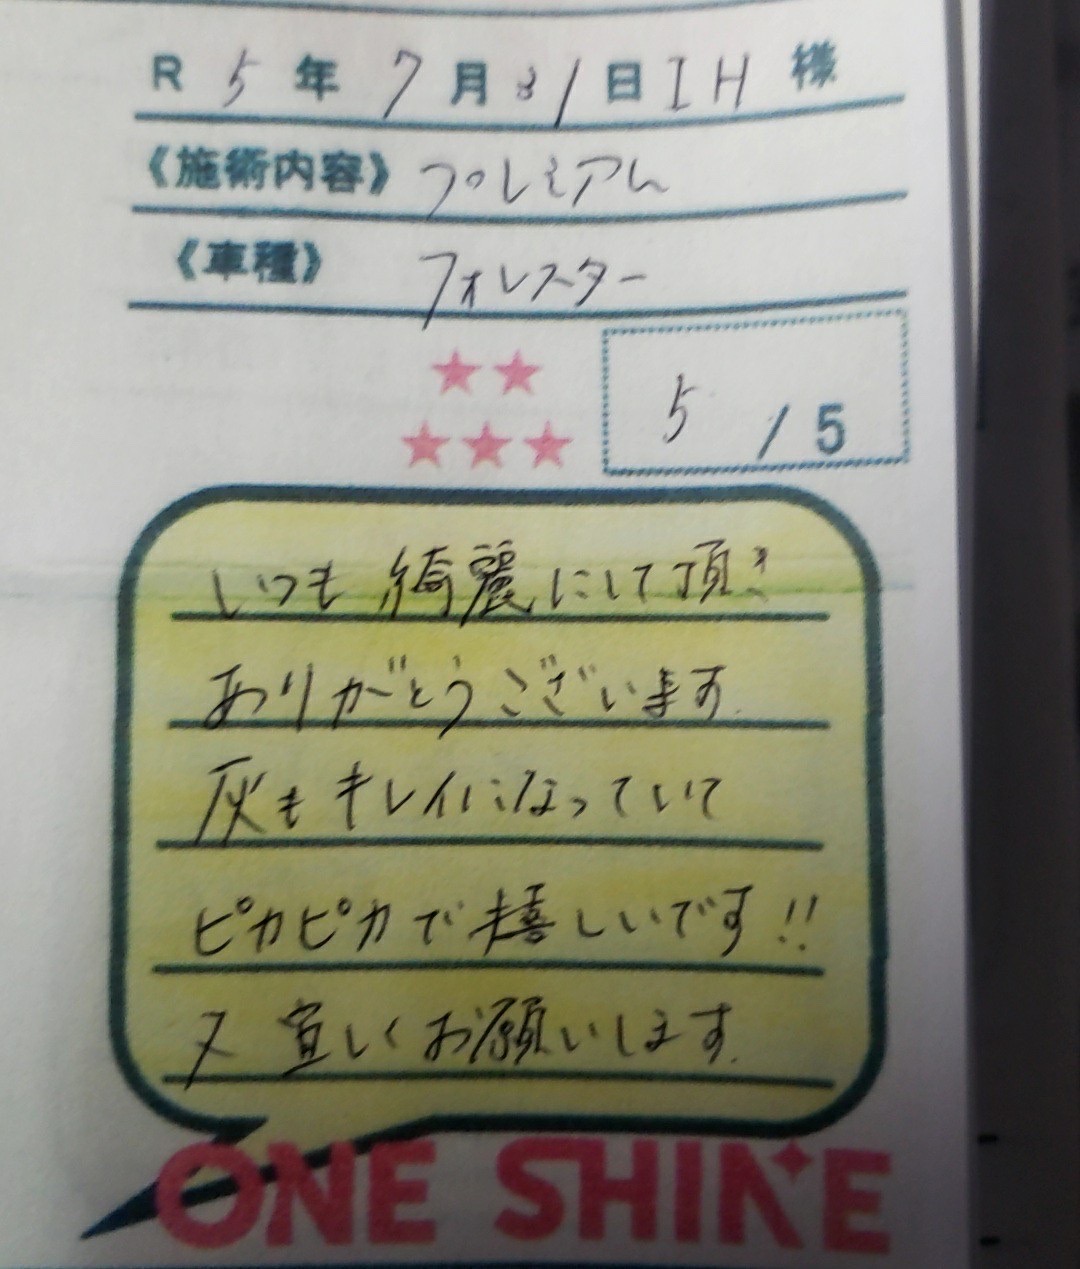 R 5年 7月31日 IH 様
《施術内容》 プレミアム
《車種》 フォレスター
5 / 5
いつも綺麗にして頂き
ありがとうございます.
灰もキレイになっていて
ピカピカで嬉しいです!!
又宜しくお願いします.
ONE SHINE